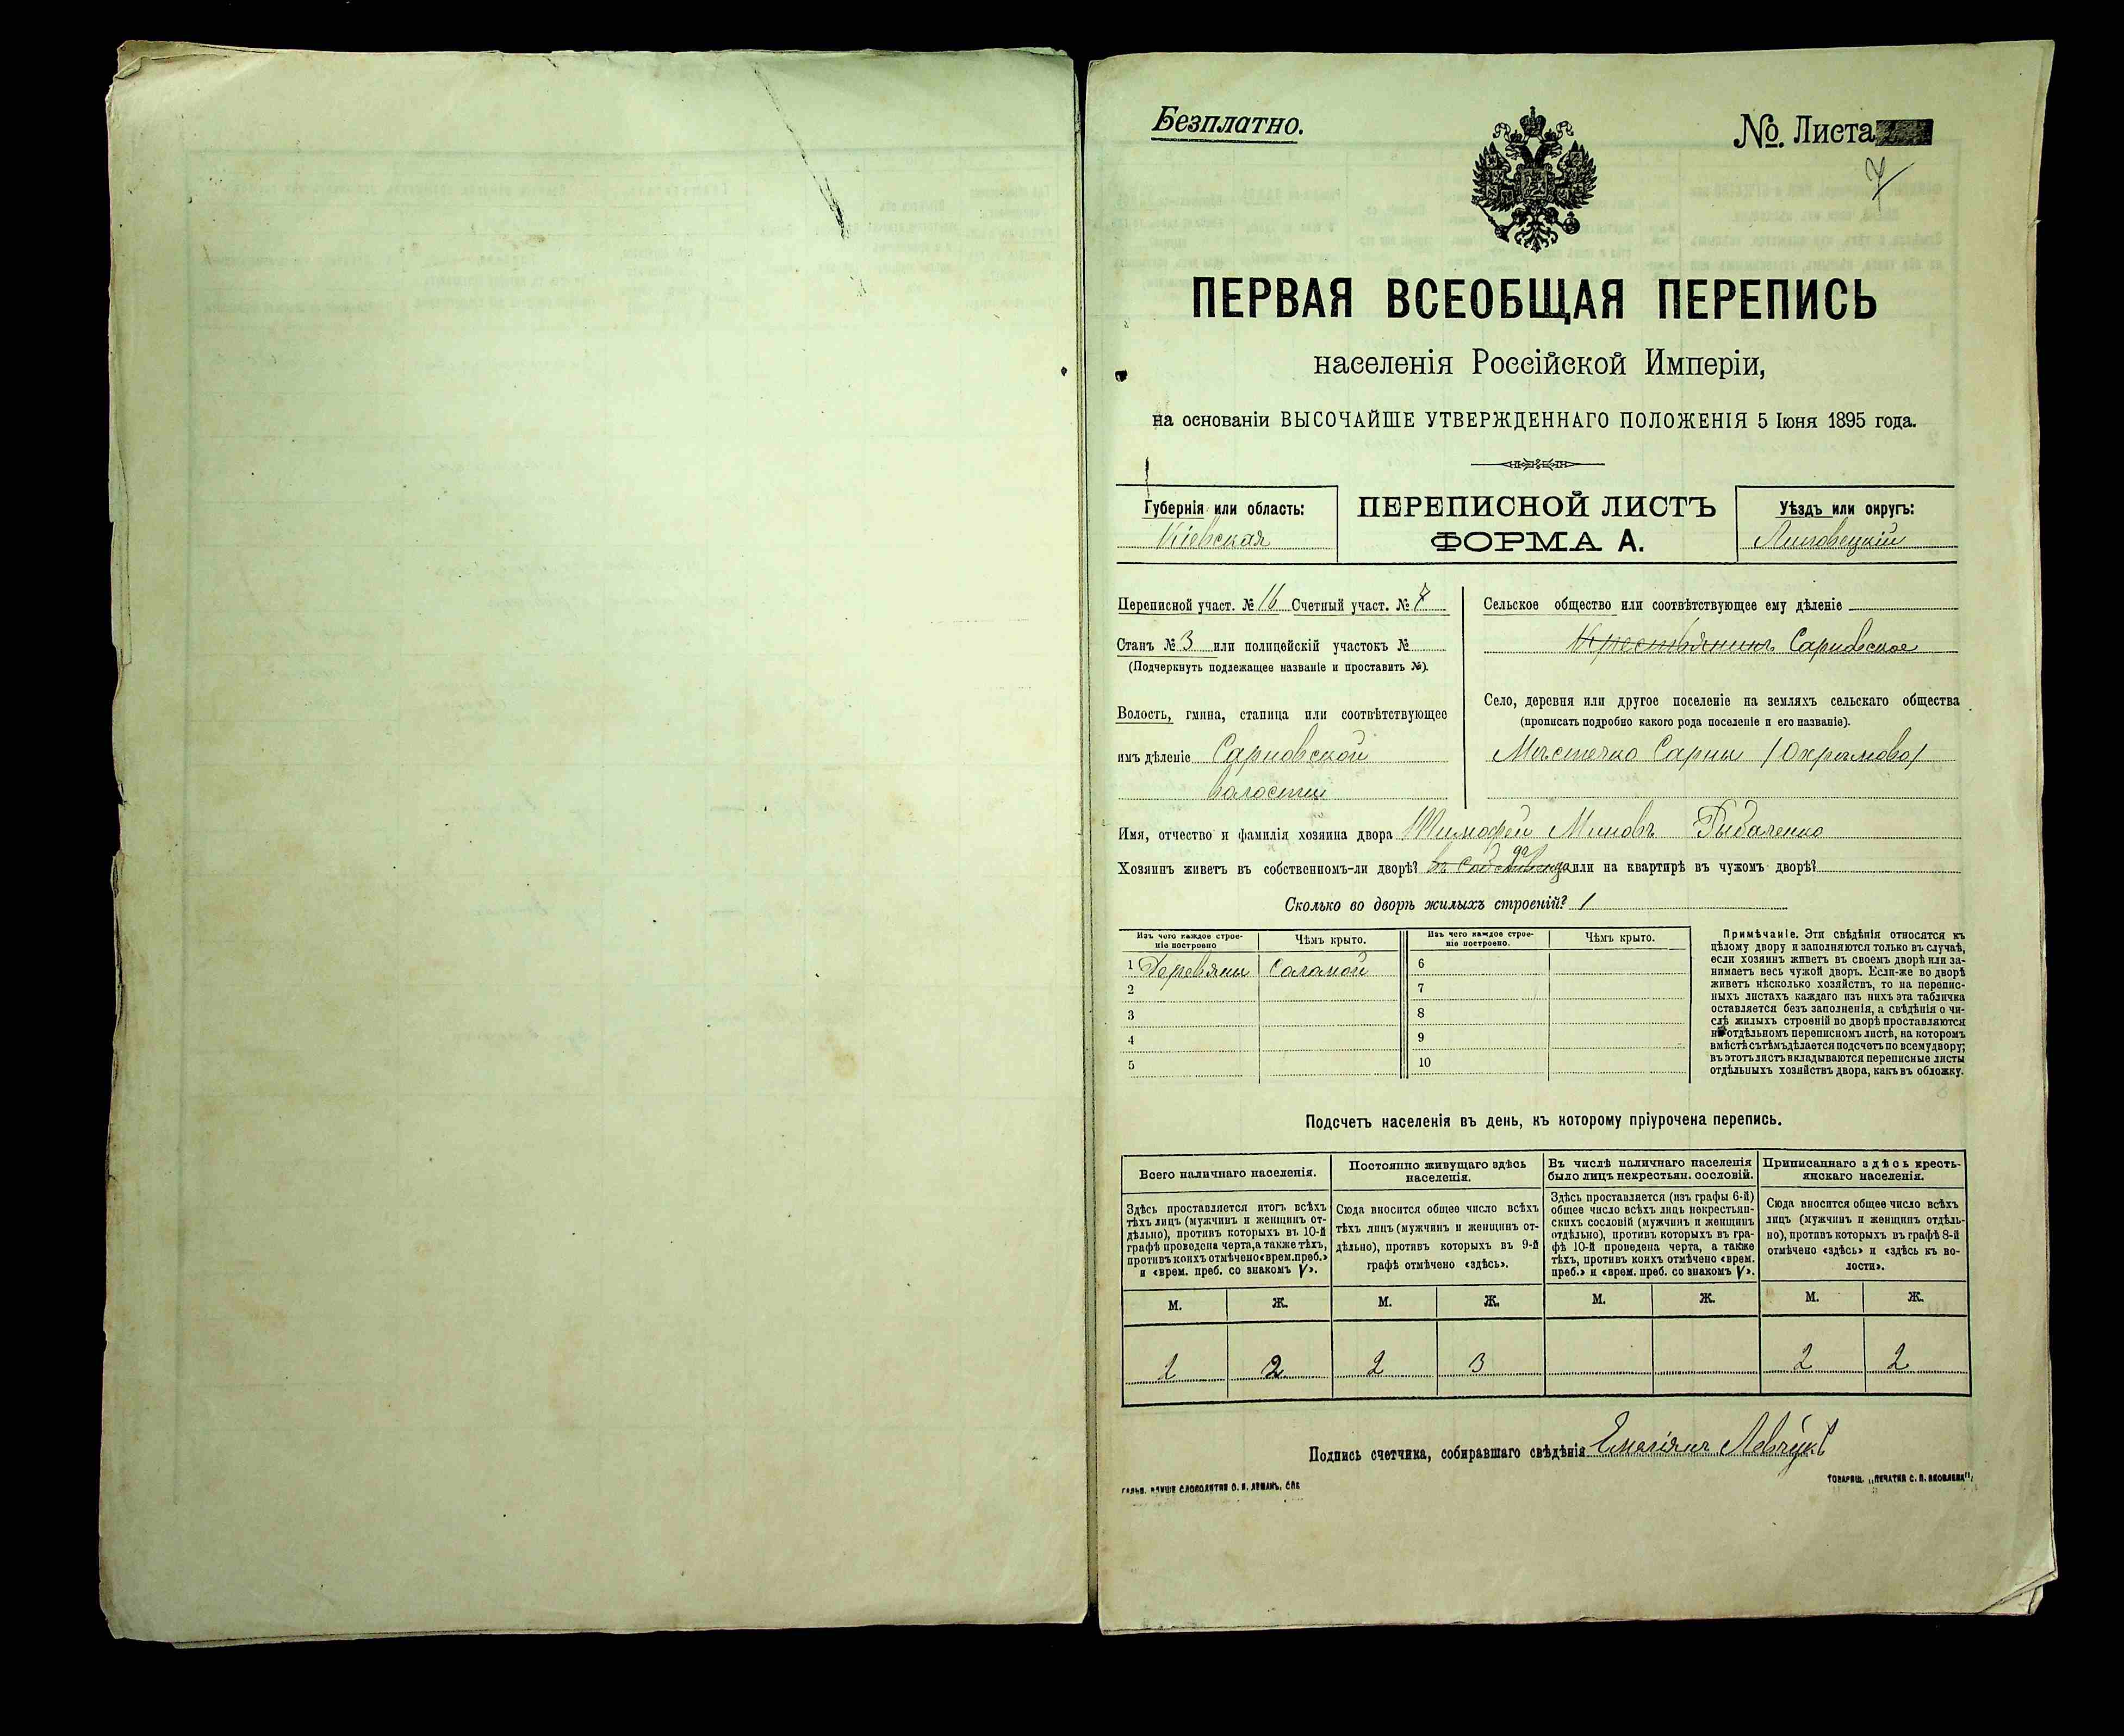 Безплатно.
№. Листа
7
ПЕРВАЯ ВСЕОБЩАЯ ПЕРЕПИСЬ
населенія Россійской Имперіи,
на основаніи ВЫСОЧАЙШЕ УТВЕРЖДЕННАГО ПОЛОЖЕНІЯ 5 Іюня 1895 года.
Губернія или область:
Кіевская
ПЕРЕПИСНОЙ ЛИСТЪ
ФОРМА А.
Уѣздъ или округъ:
Липовецкій
Переписной участ. № 16 Счетный участ. № 7
Станъ № 3 или полицейскій участокъ №
(Подчеркнуть подлежащее названіе и проставить №).
Волость, гмина, станица или соотвѣтствующее
имъ дѣленіе Сарновской
волости
Сельское общество или соотвѣтствующее ему дѣленіе
Крестьянинъ Сарновское
Село, деревня или другое поселеніе на земляхъ сельскаго общества
(прописать подробно какого рода поселеніе и его названіе).
Мѣстечко Сарны (Охримово)
Имя, отчество и фамилія хозяина двора Тимофей Миновъ Рыбаченко
Хозяинъ живетъ въ собственномъ-ли дворѣ? да или на квартирѣ въ чужомъ дворѣ?
Сколько во дворѣ жилыхъ строеній? 1
Изъ чего каждое строе-
ніе построено
Чѣмъ крыто.
Изъ чего каждое строе-
ніе построено.
Чѣмъ крыто.
1 Деревяни Соломой
2
3
4
5
6
7
8
9
10
Примѣчаніе. Эти свѣдѣнія относятся къ
цѣлому двору и заполняются только въ случаѣ,
если хозяинъ живетъ въ своемъ дворѣ или за-
нимаетъ весь чужой дворъ. Если-же во дворѣ
живетъ нѣсколько хозяйствъ, то на перепис-
ныхъ листахъ каждаго изъ нихъ эта табличка
оставляется безъ заполненія, а свѣдѣнія о чи-
слѣ жилыхъ строеній во дворѣ проставляются
на отдѣльномъ переписномъ листѣ, на которомъ
вмѣстѣ съ тѣмъ дѣлается подсчетъ по всему двору;
въ этотъ листъ вкладываются переписные листы
отдѣльныхъ хозяйствъ двора, какъ въ обложку.
Подсчетъ населенія въ день, къ которому пріурочена перепись.
Всего наличнаго населенія.
Здѣсь проставляется итогъ всѣхъ
тѣхъ лицъ (мужчинъ и женщинъ от-
дѣльно), противъ которыхъ въ 10-й
графѣ проведена черта, а также тѣхъ,
противъ коихъ отмѣчено «врем. преб.»
и «врем. преб. со знакомъ V».
Постоянно живущаго здѣсь
населенія.
Сюда вносится общее число всѣхъ
тѣхъ лицъ (мужчинъ и женщинъ от-
дѣльно), противъ которыхъ въ 9-й
графѣ отмѣчено «здѣсь».
Въ числѣ наличнаго населенія
было лицъ некрестьян. сословій.
Здѣсь проставляется (изъ графы 6-й)
общее число всѣхъ лицъ некрестьян-
скихъ сословій (мужчинъ и женщинъ
отдѣльно), противъ которыхъ въ гра-
фѣ 10-й проведена черта, а также
тѣхъ, противъ коихъ отмѣчено «врем.
преб.» и «врем. преб. со знакомъ V».
Приписаннаго здѣсь кресть-
янскаго населенія.
Сюда вносится общее число всѣхъ
лицъ (мужчинъ и женщинъ отдѣль-
но), противъ которыхъ въ графѣ 8-й
отмѣчено «здѣсь» и «здѣсь къ во-
лости».
М. Ж. М. Ж. М. Ж. М. Ж.
2 2 3 2 2
Подпись счетчика, собиравшаго свѣдѣнія Емельянъ Левчукъ
ТОВАРИЩ. „ПЕЧАТНЯ С. П. ЯКОВЛЕВА“